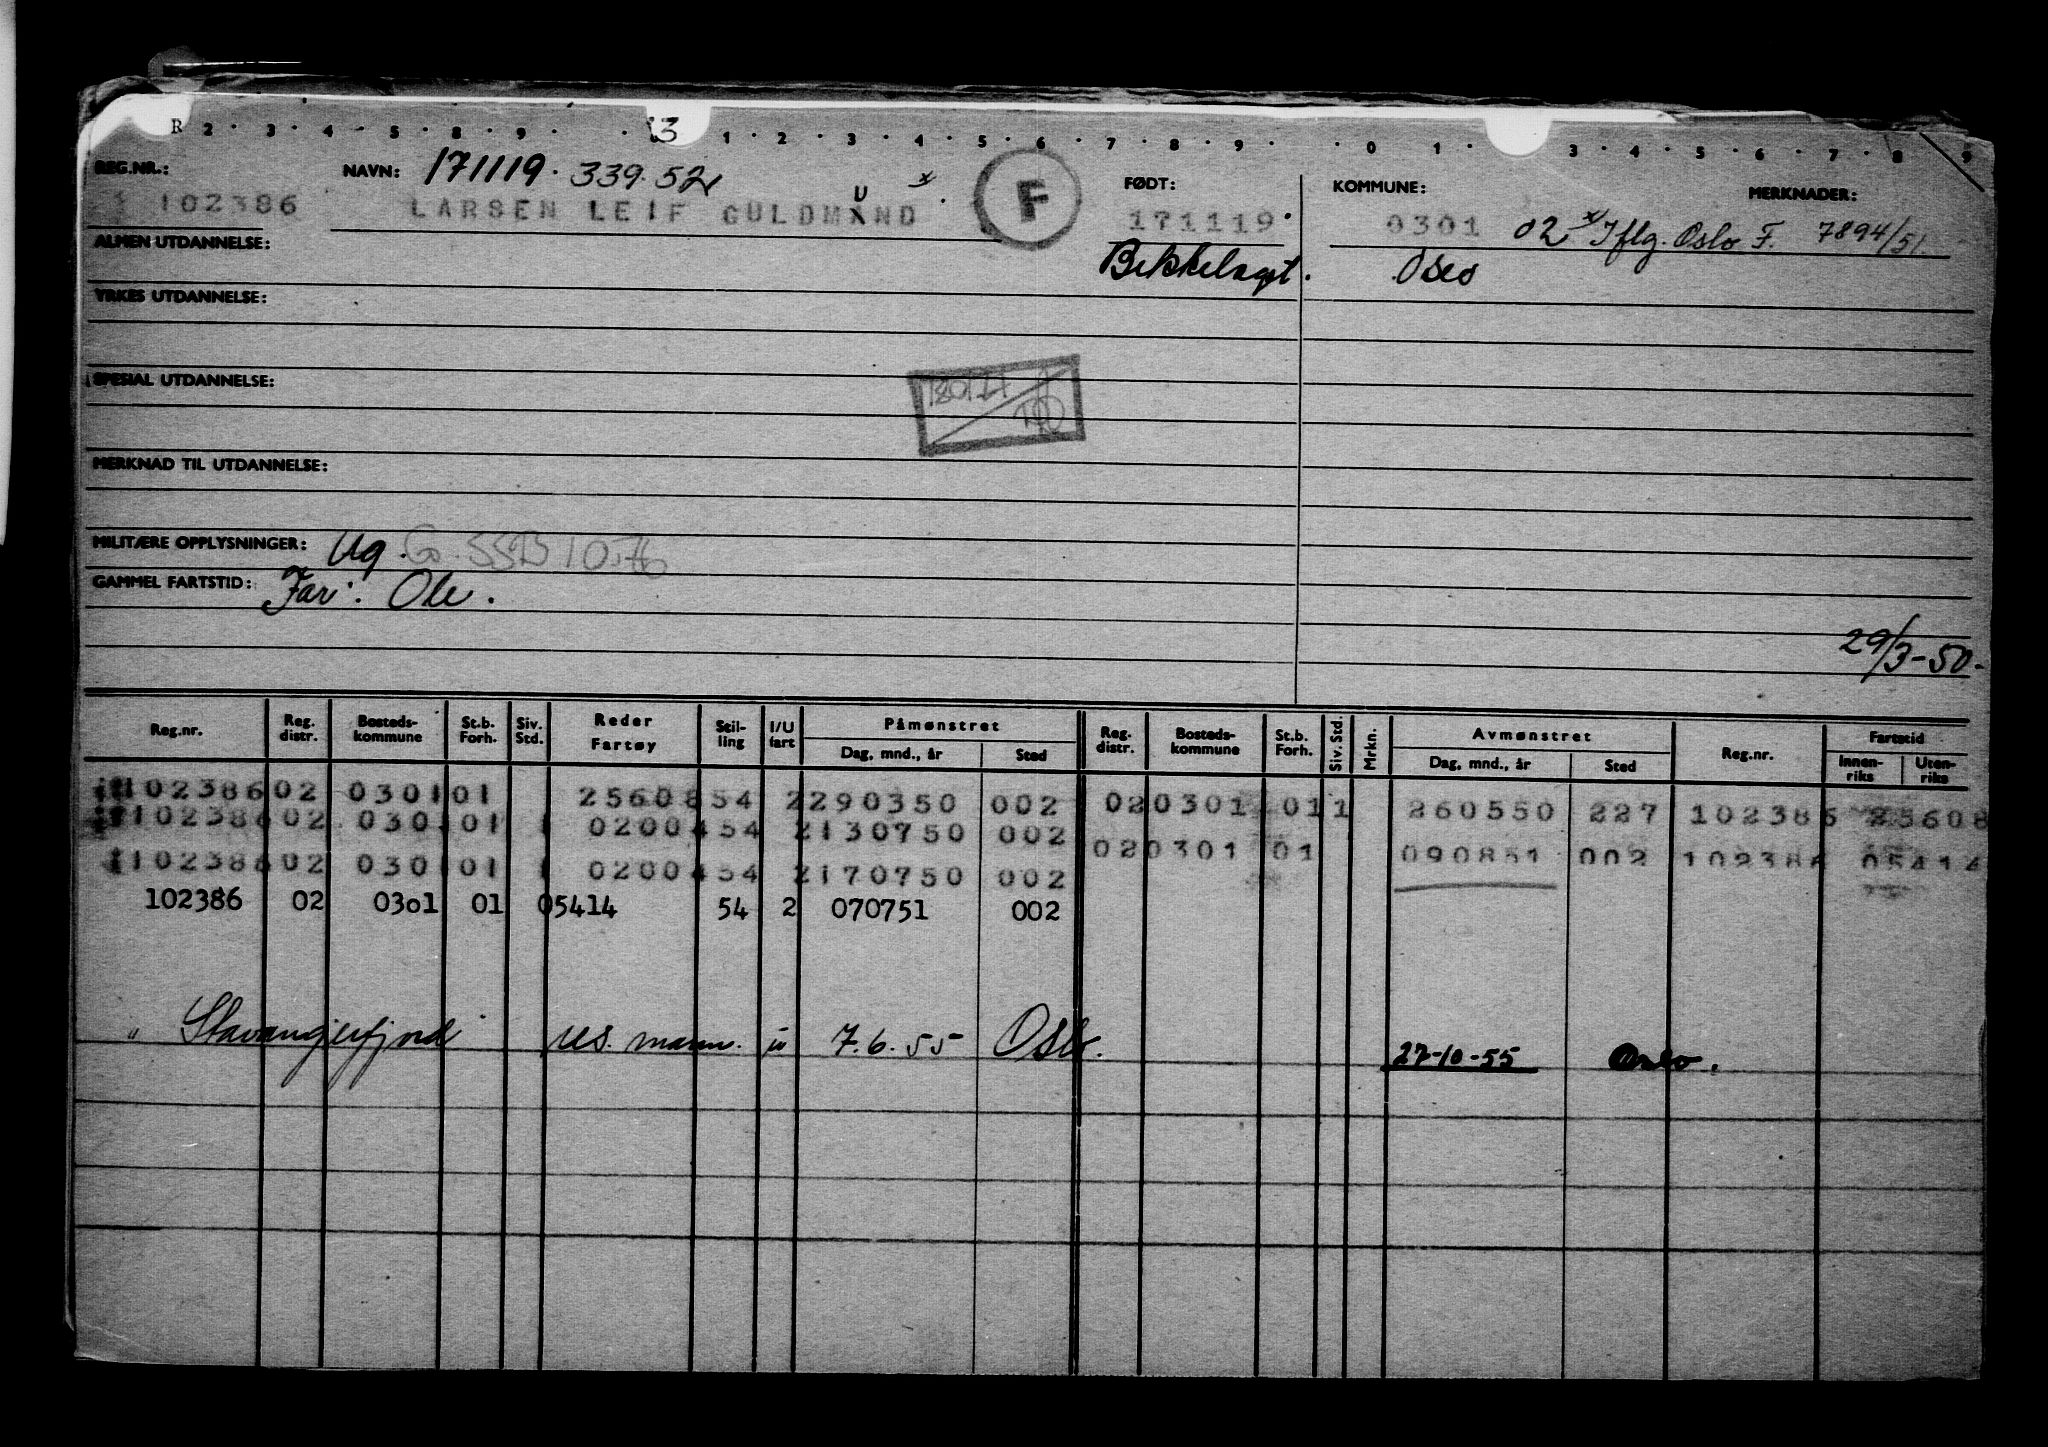 R 2 · 3 · 4 · 5 · 8 · 9 · · 3 · 1 · 2 · 3 · 4 · 5 · 6 · 7 · 8 · 9 · · 0 · 1 · 3 · 4 · 5 · 6 · 7 · 8 · 9
REG.NR.: NAVN: 171119. 339.52 FØDT: KOMMUNE: MERKNADER:
102386 LARSEN LEIF GULDMAND U x F 171119 0301 02 x Iflg. Oslo F. 7894/51.
ALMEN UTDANNELSE: Bekkelaget. Oslo
YRKES UTDANNELSE:
SPESIAL UTDANNELSE:
MERKNAD TIL UTDANNELSE:
MILITÆRE OPPLYSNINGER: Ug. SSB 10.76
GAMMEL FARTSTID: Far: Ole.
29/3-50.
Reg.nr. Reg. distr. Bosteds-kommune St.b. Forh. Siv. Std. Reder Fartøy Stil-ling I/U fart Påmønstret Dag, mnd., år Sted Reg. distr. Bosteds-kommune St.b. Forh. Siv. Std. Mrkn. Avmønstret Dag, mnd., år Sted Reg.nr. Fartstid Innen-riks Uten-riks
102386 02 0301 01 25608 54 2 290350 002 02 0301 01 1 260550 227 102386 25608
102386 02 0301 01 1 02004 54 2 130750 002
102386 02 0301 01 1 02004 54 2 170750 002 02 0301 01 090851 002 102386 05414
102386 02 03o1 01 05414 54 2 070751 002
" Stavangerfjord" res. mann. u 7.6.55 Oslo. 27-10-55 Oslo.